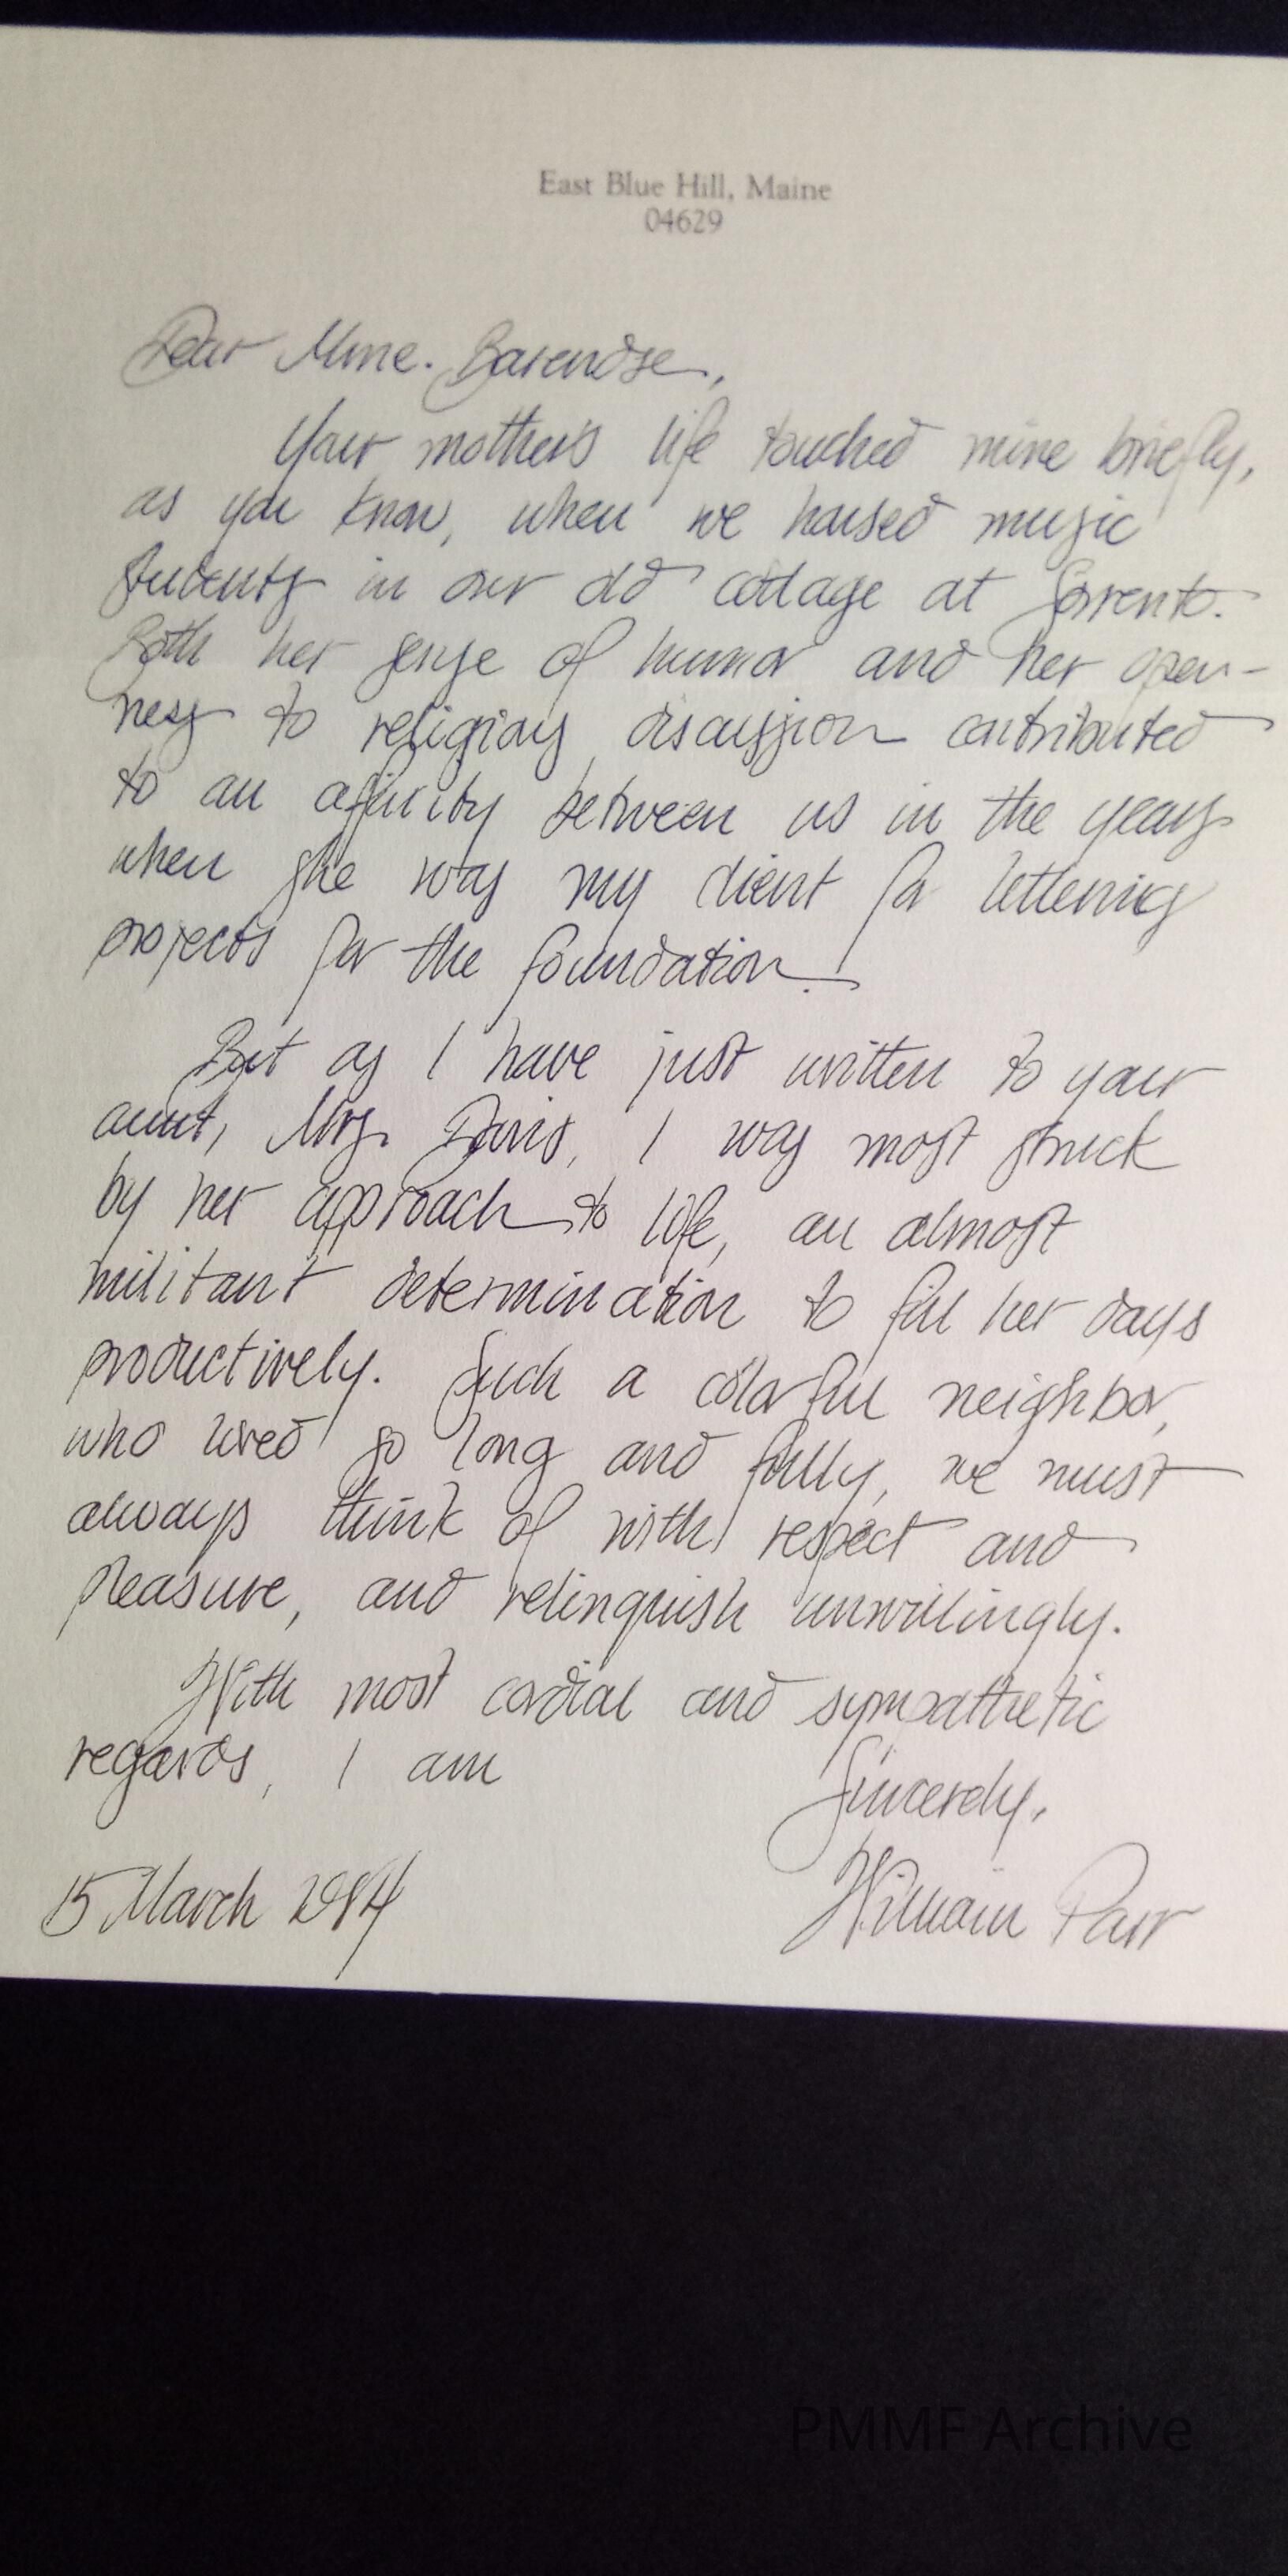 East Blue Hill, Maine
04629
Dear Mme. Barendse,
Your mother's life touched mine briefly,
as you know, when we housed music
students in our old cottage at Sorrento.
Both her sense of humor and her open-
ness to religious discussion contributed
to an affinity between us in the years
when she was my client for lettering
projects for the foundation.
But as I have just written to your
aunt, Mrs. Davis, I was most struck
by her approach to life, an almost
militant determination to fill her days
productively. Such a colorful neighbor,
who lived so long and fully, we must
always think of with respect and
pleasure, and relinquish unwillingly.
With most cordial and sympathetic
regards, I am
Sincerely,
William Parr
15 March
PMMF Archive